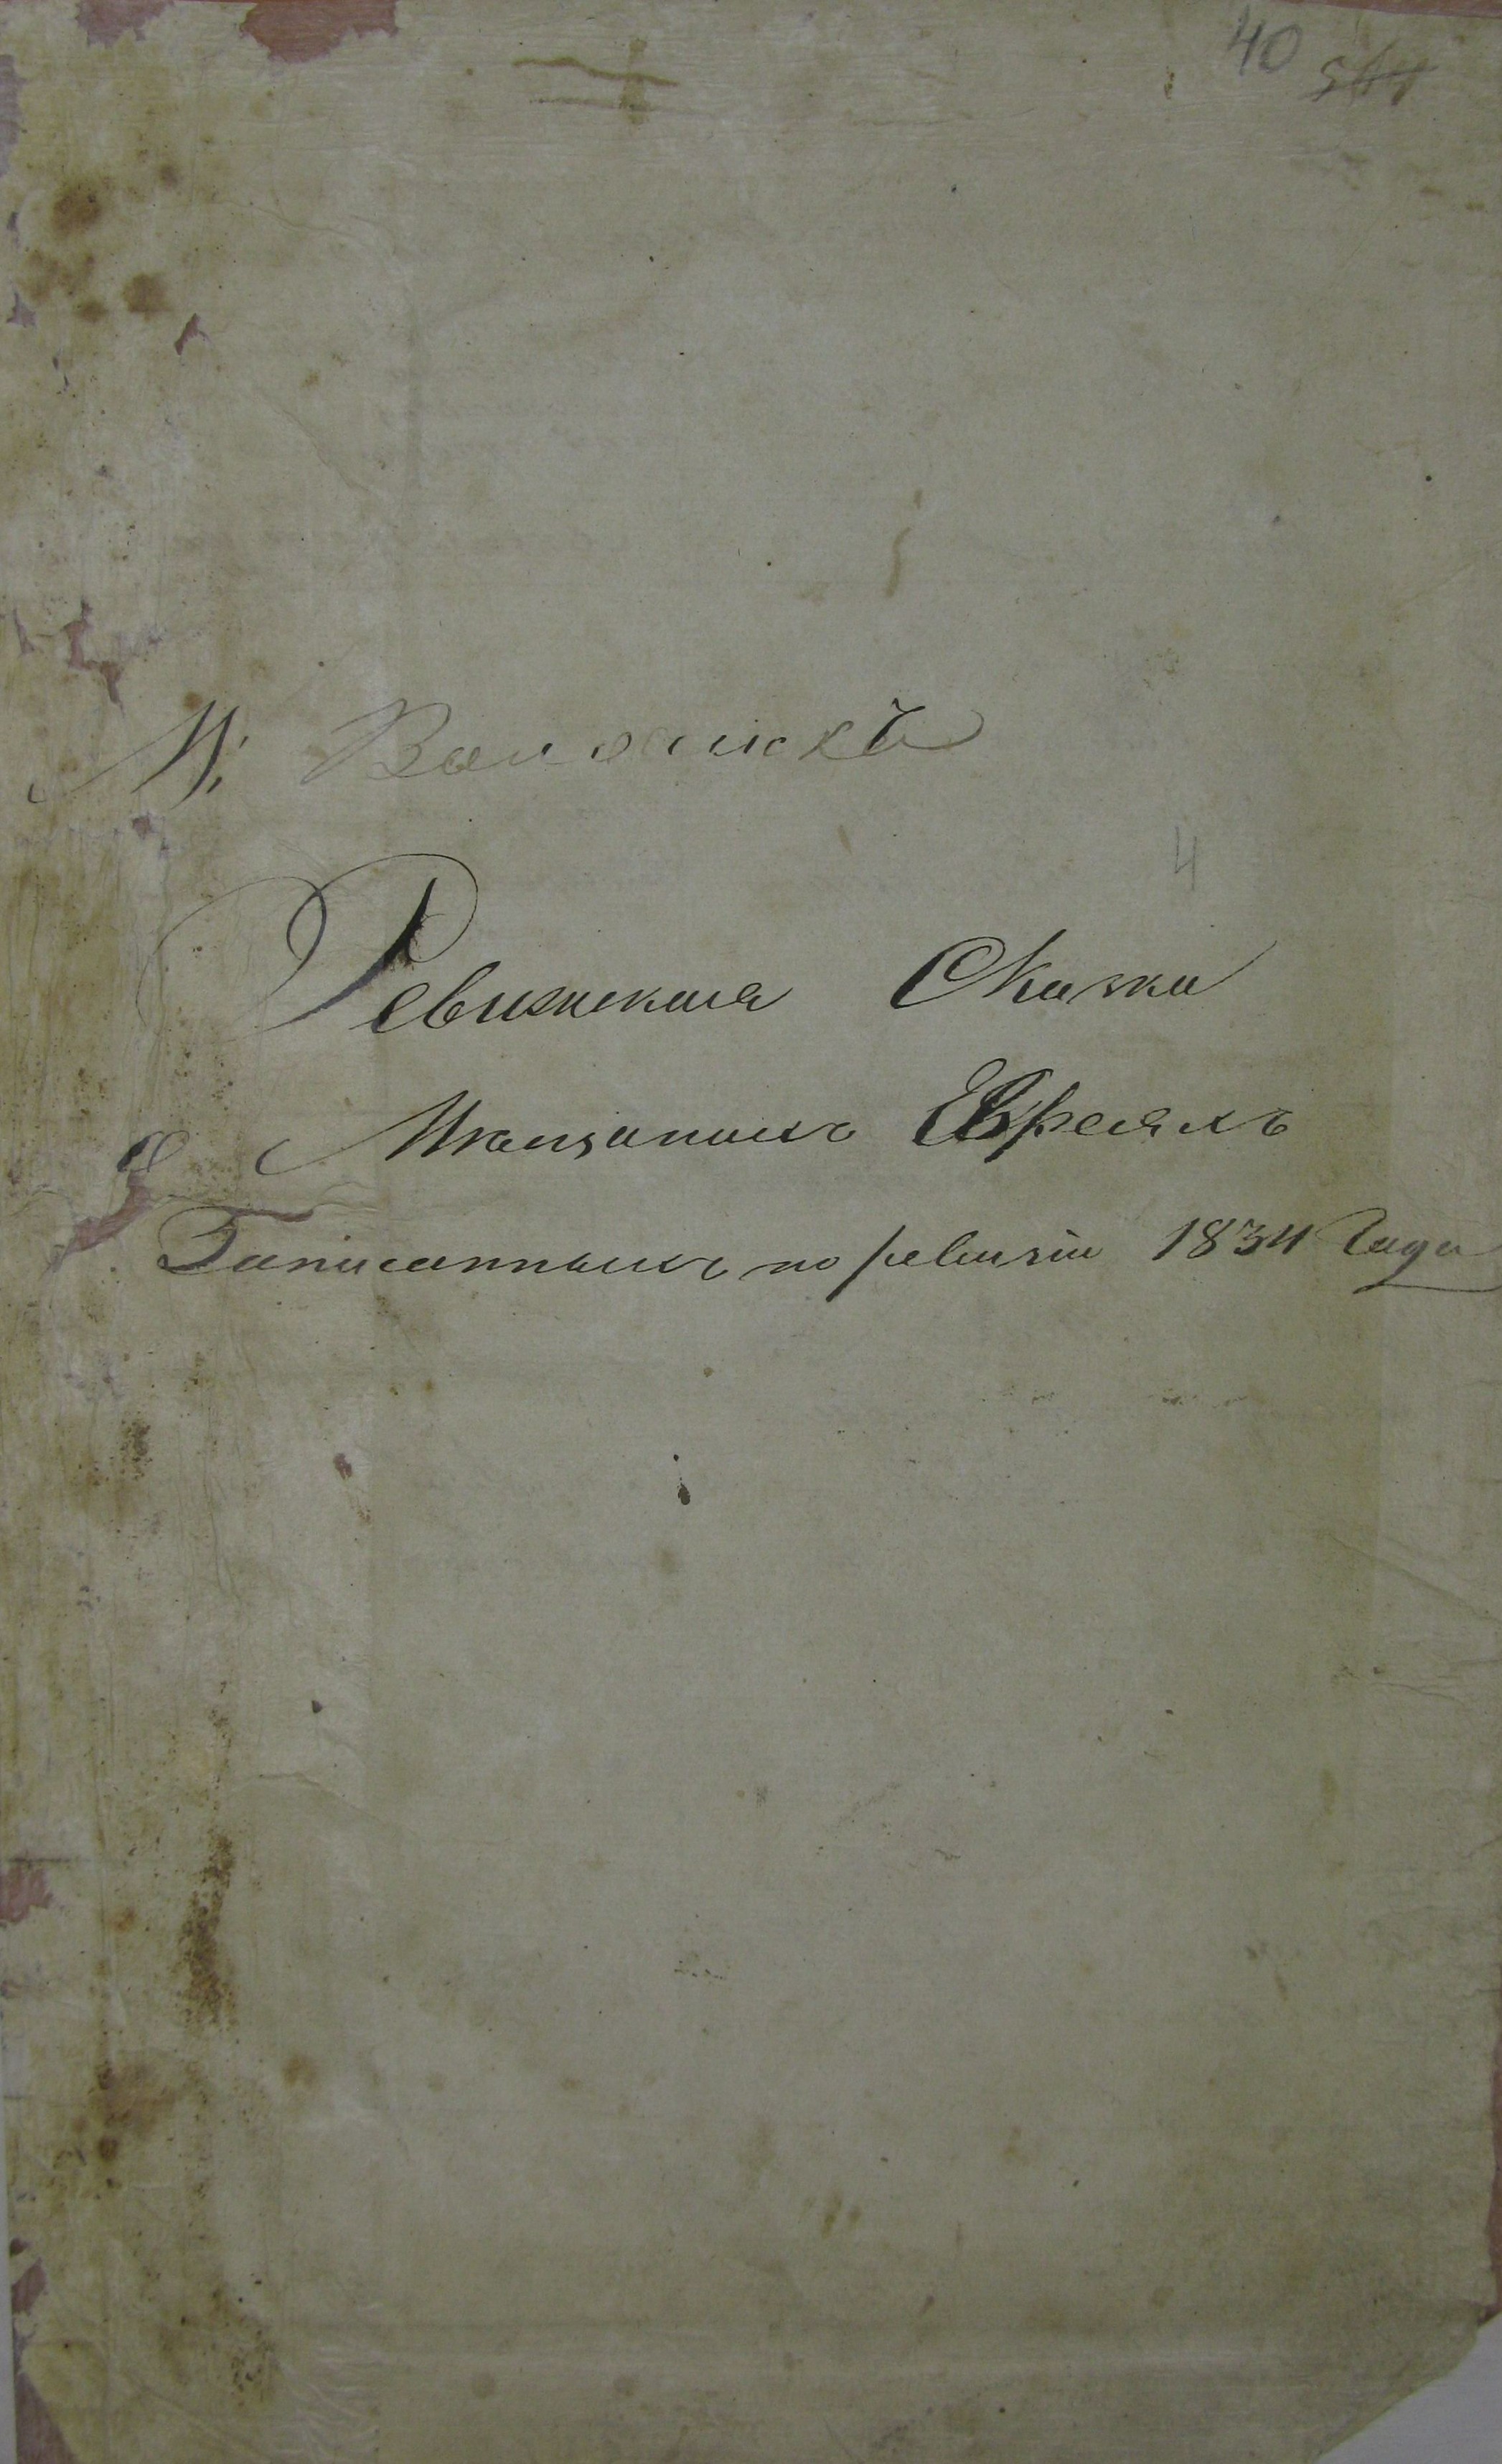 40 564
М: Волочискъ
4
Ревижская Сказка
О Мѣщанахъ Евреяхъ
Записанныхъ по ревизіи 1834 Года